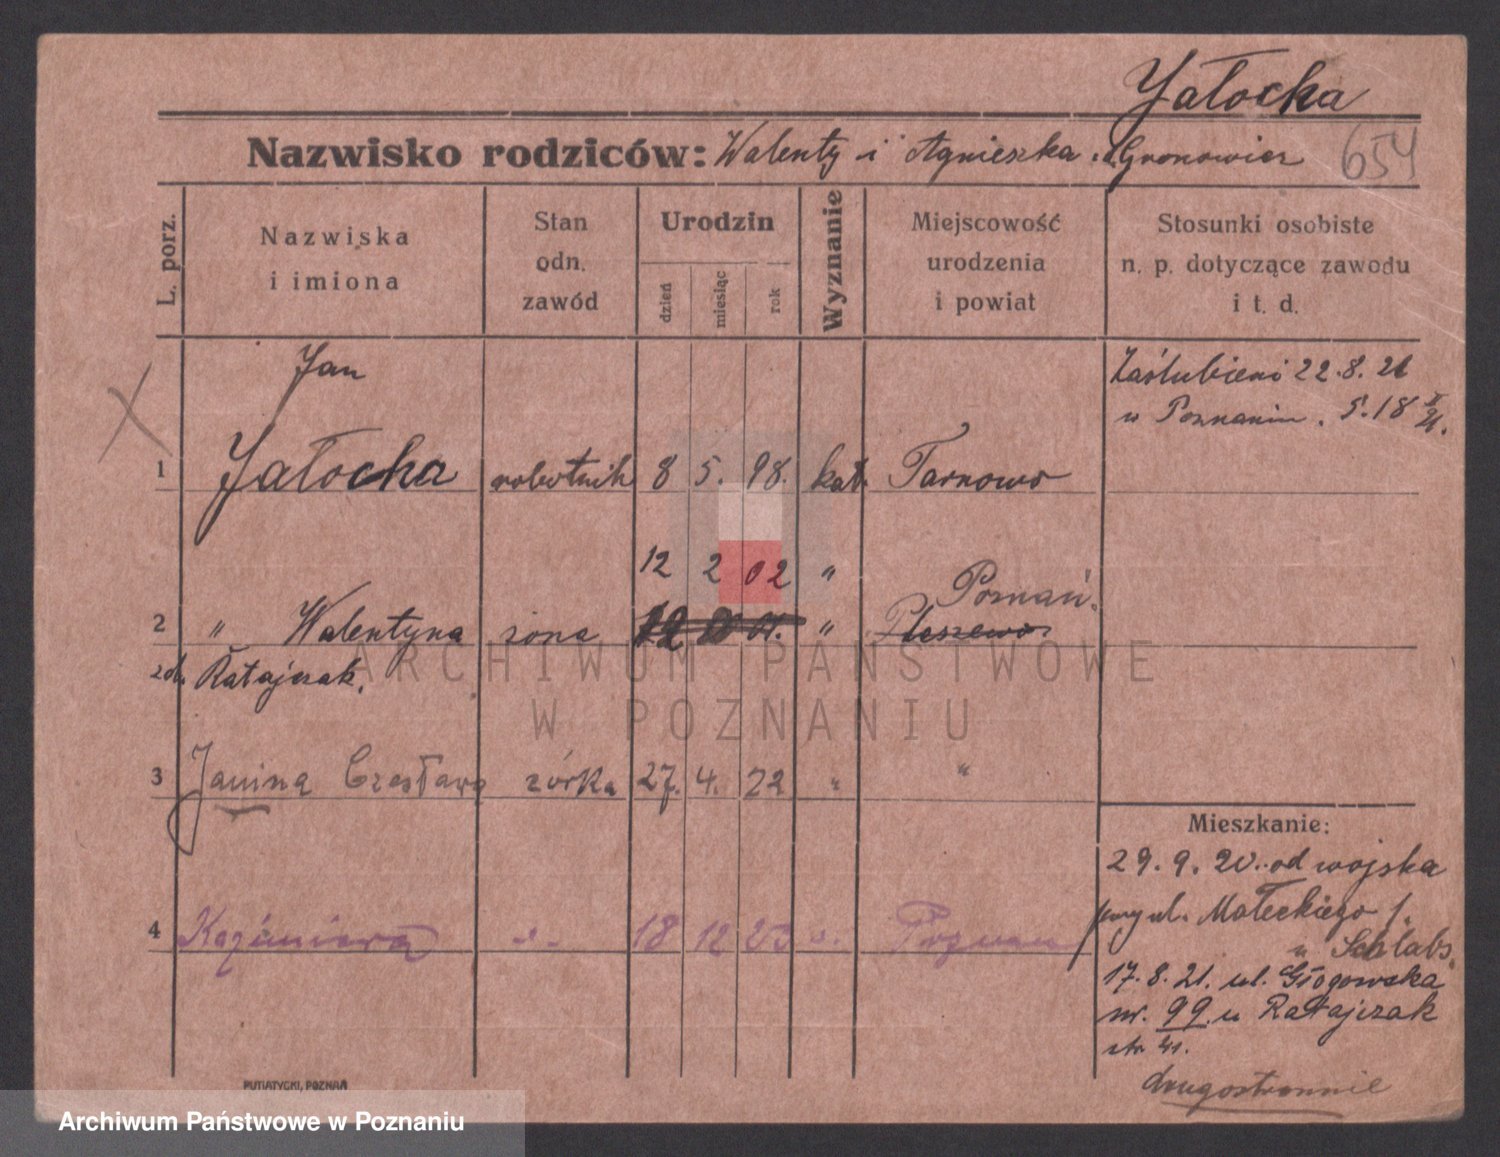 Jałocka
Nazwisko rodziców: Walenty i Agnieszka Gronowicz 654
L. porz.
Nazwiska
i imiona
Stan
odn.
zawód
Urodzin
dzień
miesiąc
rok
Wyznanie
Miejscowość
urodzenia
i powiat
Stosunki osobiste
n. p. dotyczące zawodu
i t. d.
Jan
Zaślubieni 22.8.21
w Poznaniu. S. 18
1 Jałocha robotnik 8 5. 98. kat. Tarnowo
12 2 02 " Poznań.
2 " Walentyna żona " Pleszewo
zd. Ratajczak.
3 Janina Czesława córka 27. 4. 22 " "
4 Kazimiera -"- 18 12 23 Poznan
Mieszkanie:
29.9.20. od wojska
przy ul. Małeckiego
" Schlabs.
17.8.21. ul. Głogowska
nr. 99 u Ratajczak
drugostronnie
PUTIATYCKI, POZNAŃ
ARCHIWUM PAŃSTWOWE
W POZNANIU
Archiwum Państwowe w Poznaniu